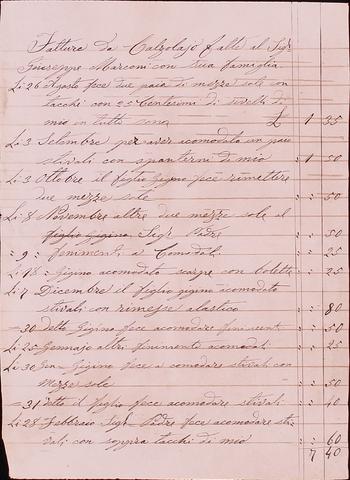 Fatture da Calzolajo fatte al Sigr
Giuseppe Marconi con sua famiglia
Li 26 Agosto fece due paia di mezze sole con
tacchi con 25 Centesimi di
mio in tutti sono £ 1 35
Li 3 Settembre per aver acomodato un paio
stivali con spanterni di mio : 1 50
Li 3 Ottobre il figlio Gigino fece rimettere
due mezze sole : : 50
Li 8 Novembre altre due mezze sole al
figlio Gigino Sigr Padre : : 50
: 9 : fenimenti a Comodati : : 25
Li 18 : Gigino acomodato scarpe con bolette : : 25
Li 7 Dicembre il figlio gigino acomodato
stivali con rimesse alastico : : 80
- 30 Detto Gigino fece acomodare : : 50
Li 25 Gennajo altri feninenti acomodati : : 25
Li 30 Gigino fece a comodare stivali con
Mezze sole : : 50
- 31 Detto il figlio fece acomodare stivali : : 40
Li 28 Febbraio Sigr Padre fece acomodare sti-
vali con soppra tacchi di mio : : 60
7 40